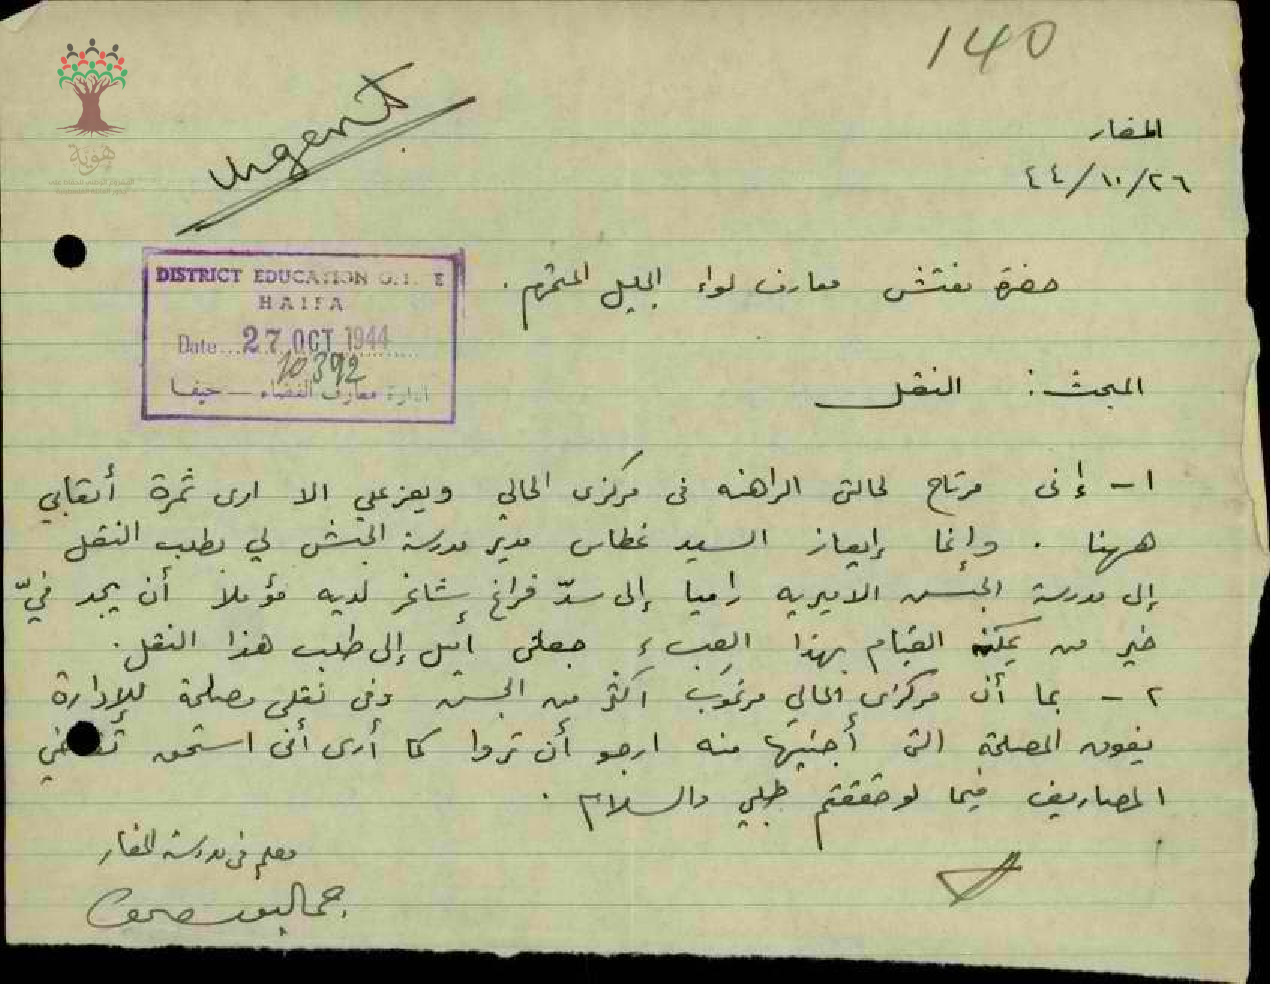 140
Urgent
المغار
٢٦/١٠/٤٤
هوية
DISTRICT EDUCATION
HAIFA
Date 27 OCT 1944
10392
ادارة معارف القضاء — حيفا
حضرة مفتش معارف لواء الجليل المحترم .
المبحث : النقل
١ - إني مرتاح لحالتي الراهنه في مركزي الحالي ويعز علي الا ارى ثمرة أتعابي
ههنا . وإنما إيعاز السيد غطاس مدير مدرسة الجش لي بطلب النقل
إلى مدرسة الجش الاميريه راميا إلى سدّ فراغ شاغر لديه مؤملا أن يجد فيّ
خير من يمكنه القيام بهذا العبء جعلني أميل إلى طلب هذا النقل .
٢ - بما أن مركزي الحالي مرغوب اكثر من الجش وفي نقلي مصلحة للإدارة
يفوق المصلحة التي أجنيها منه ارجو أن تروا كما أرى أني استحق
المصاريف فيما لو حققتم طلبي والسلام .
معلم في مدرسة المغار
جمال